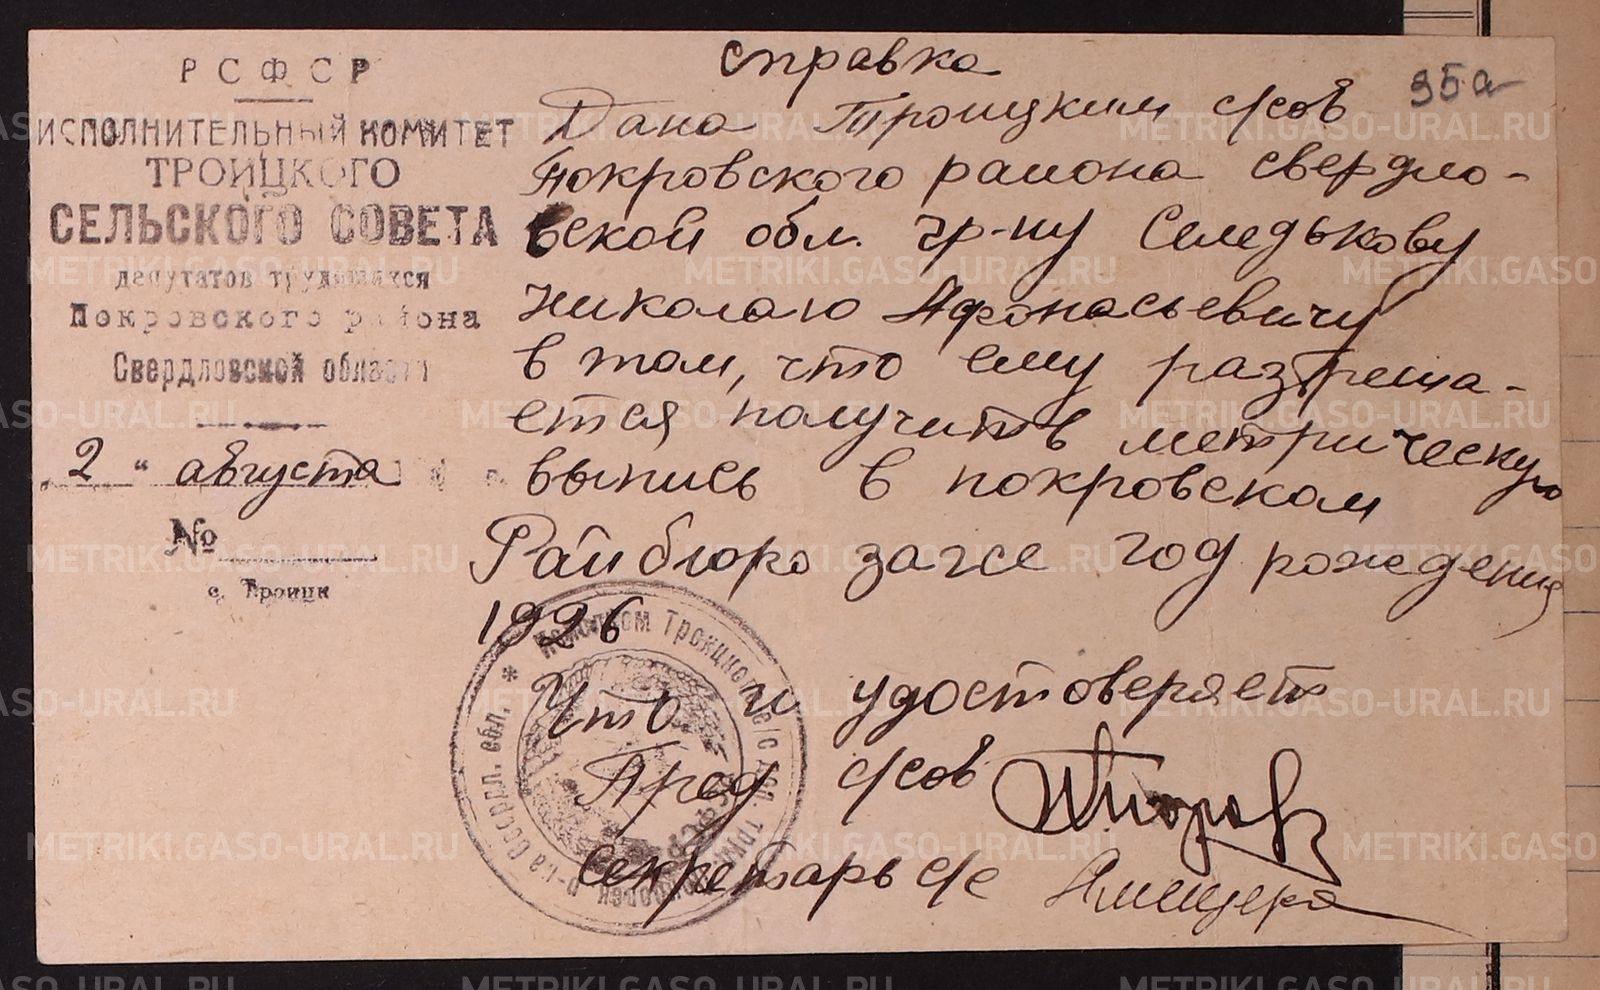 РСФСР
ИСПОЛНИТЕЛЬНЫЙ КОМИТЕТ
ТРОИЦКОГО
СЕЛЬСКОГО СОВЕТА
депутатов трудящихся
Покровского района
Свердловской области
„2“ августа
№
с. Троицк
95а
Справка
Дана Троицким с/сов
Покровского района свердло-
вской обл. гр-ну Селедькову
Николаю Афонасьевичу
в том, что ему разреша-
ется получить метрическую
выпись в покровском
Райбюро загсе год рождения
1926
Что и удостоверяет
Пред с/сов
Секретарь с/с
Исполком Троицкого с/с деп. труд.
р-на Свердл. обл. *
METRIKI.GASO-URAL.RU